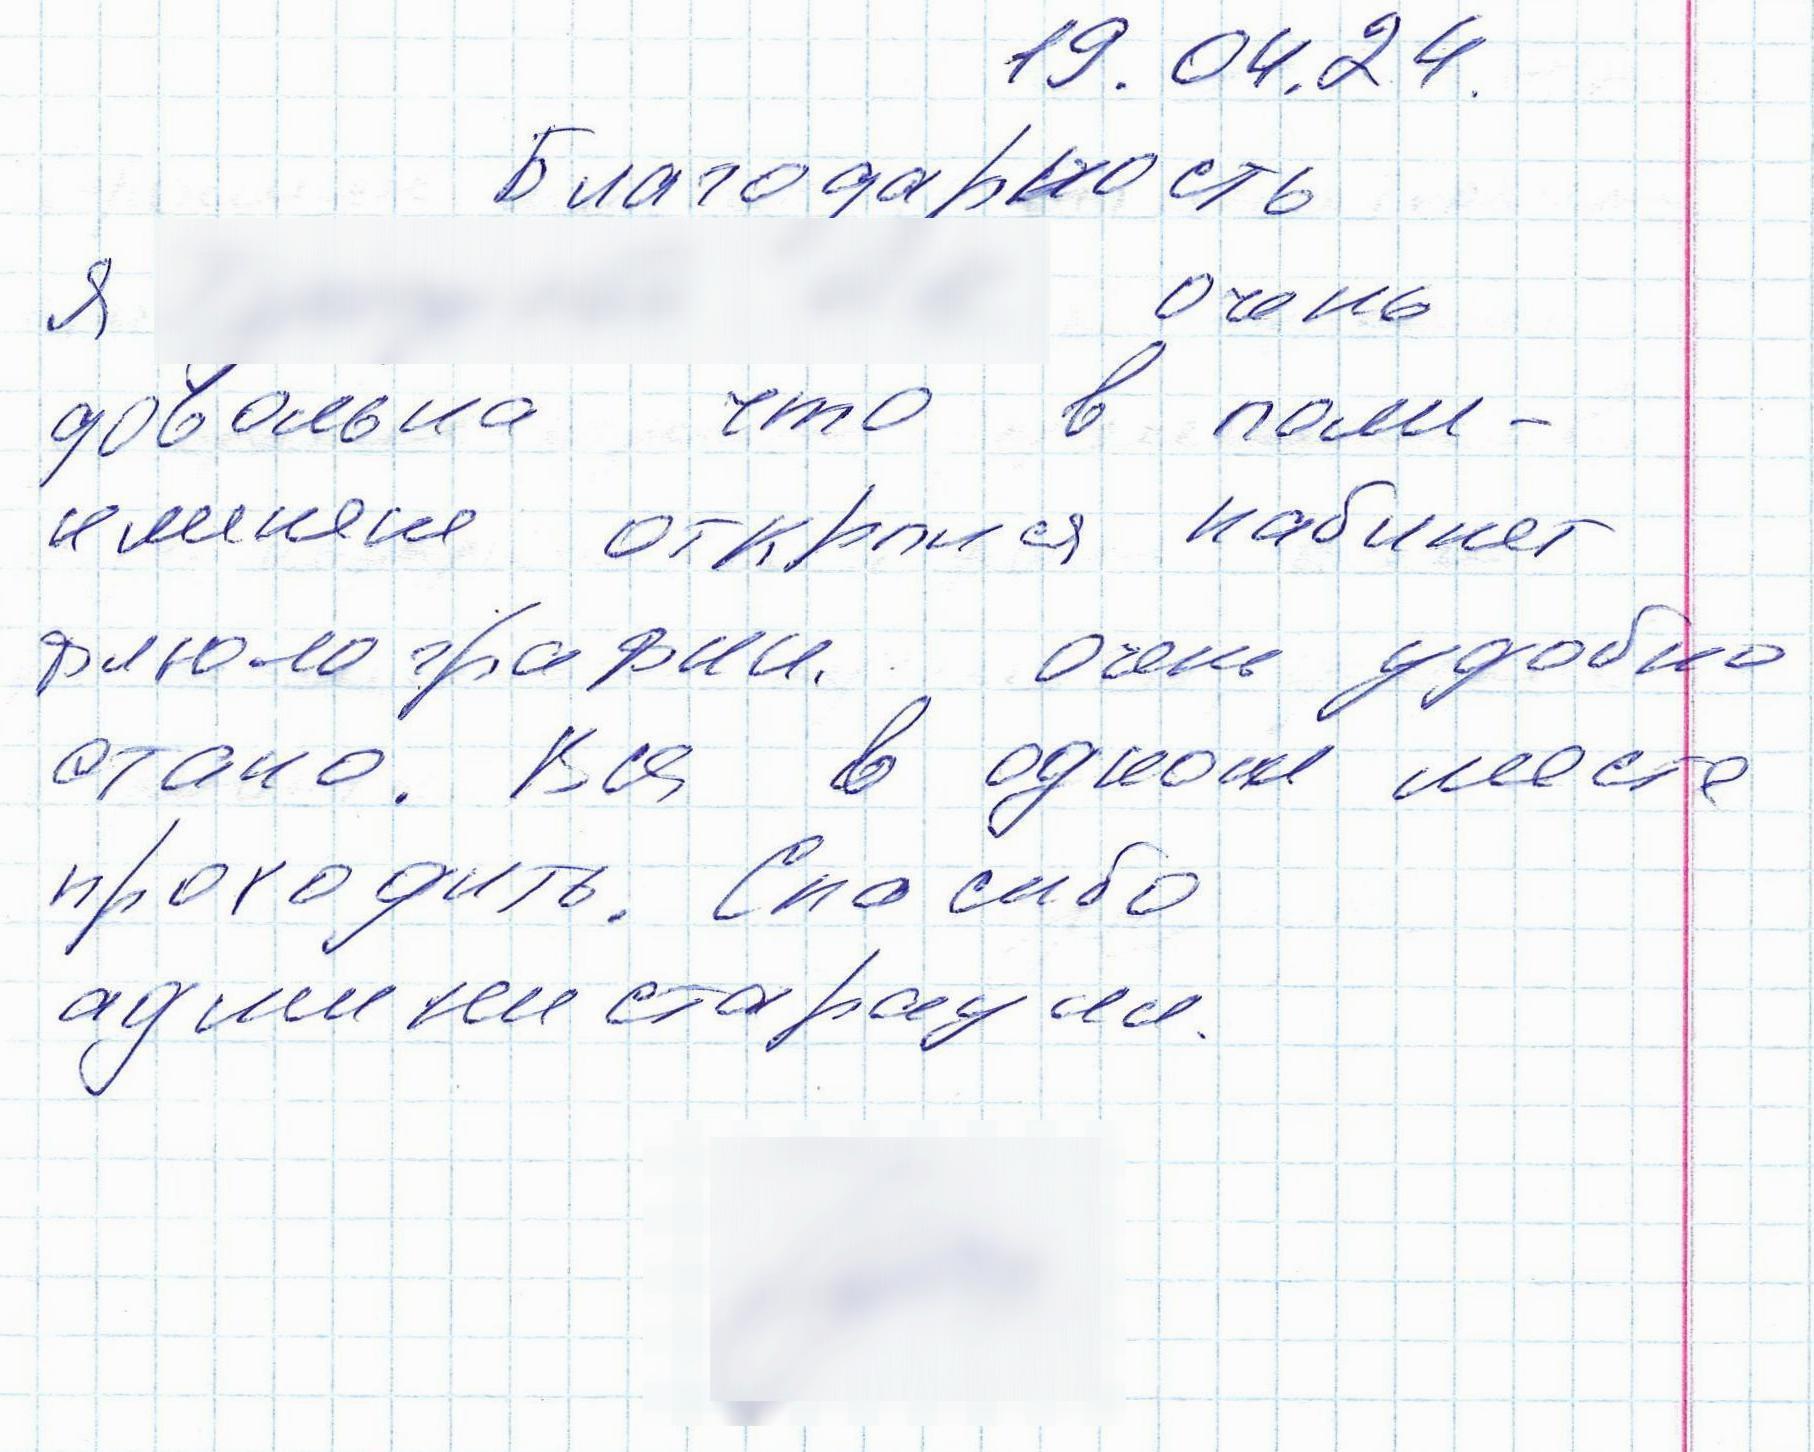 19.04.24.
Благодарность
Я очень
довольна что в поли-
открылся кабинет
флюлографии. очень удобно
стало. Вся в одном месте
проходить. Спасибо
администарации.